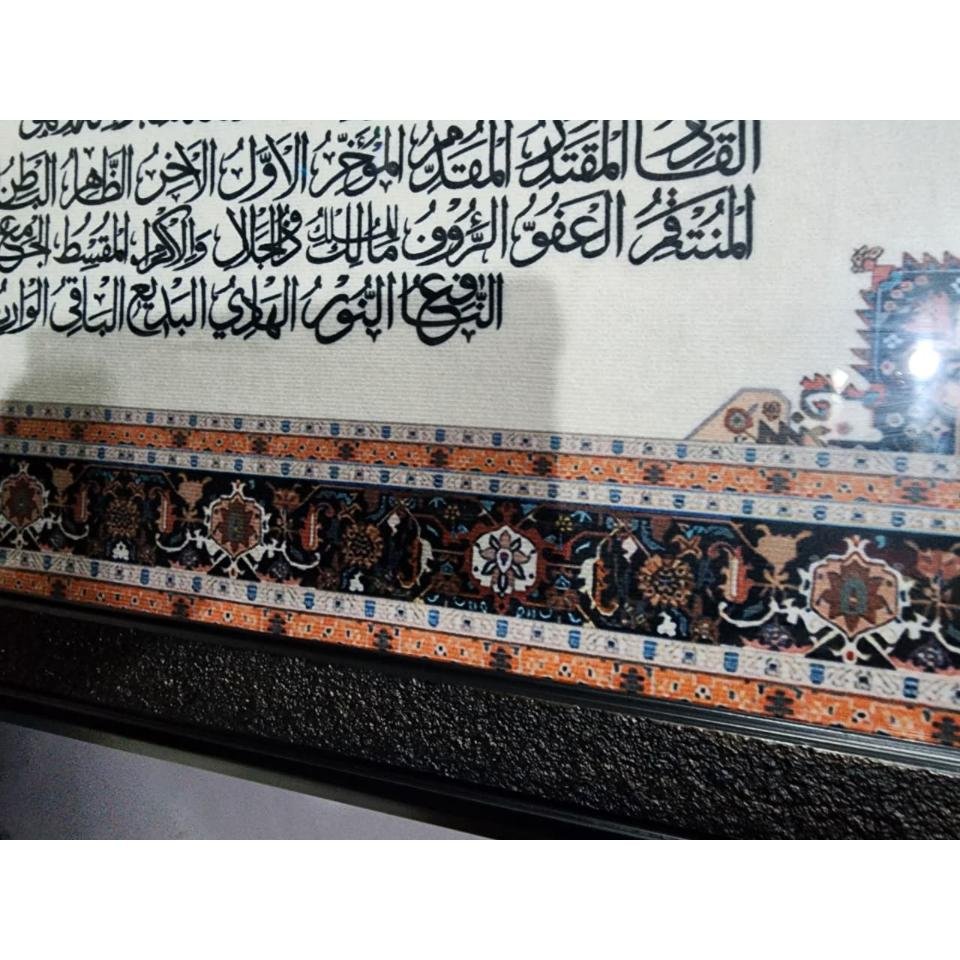 القادر المقتدر المقدم المؤخر الاول الاخر الظاهر الباطن
المنتقم العفو الرؤوف مالك الملك ذو الجلال والاكرام المقسط الجامع
النافع النور الهادي البديع الباقي الوارث